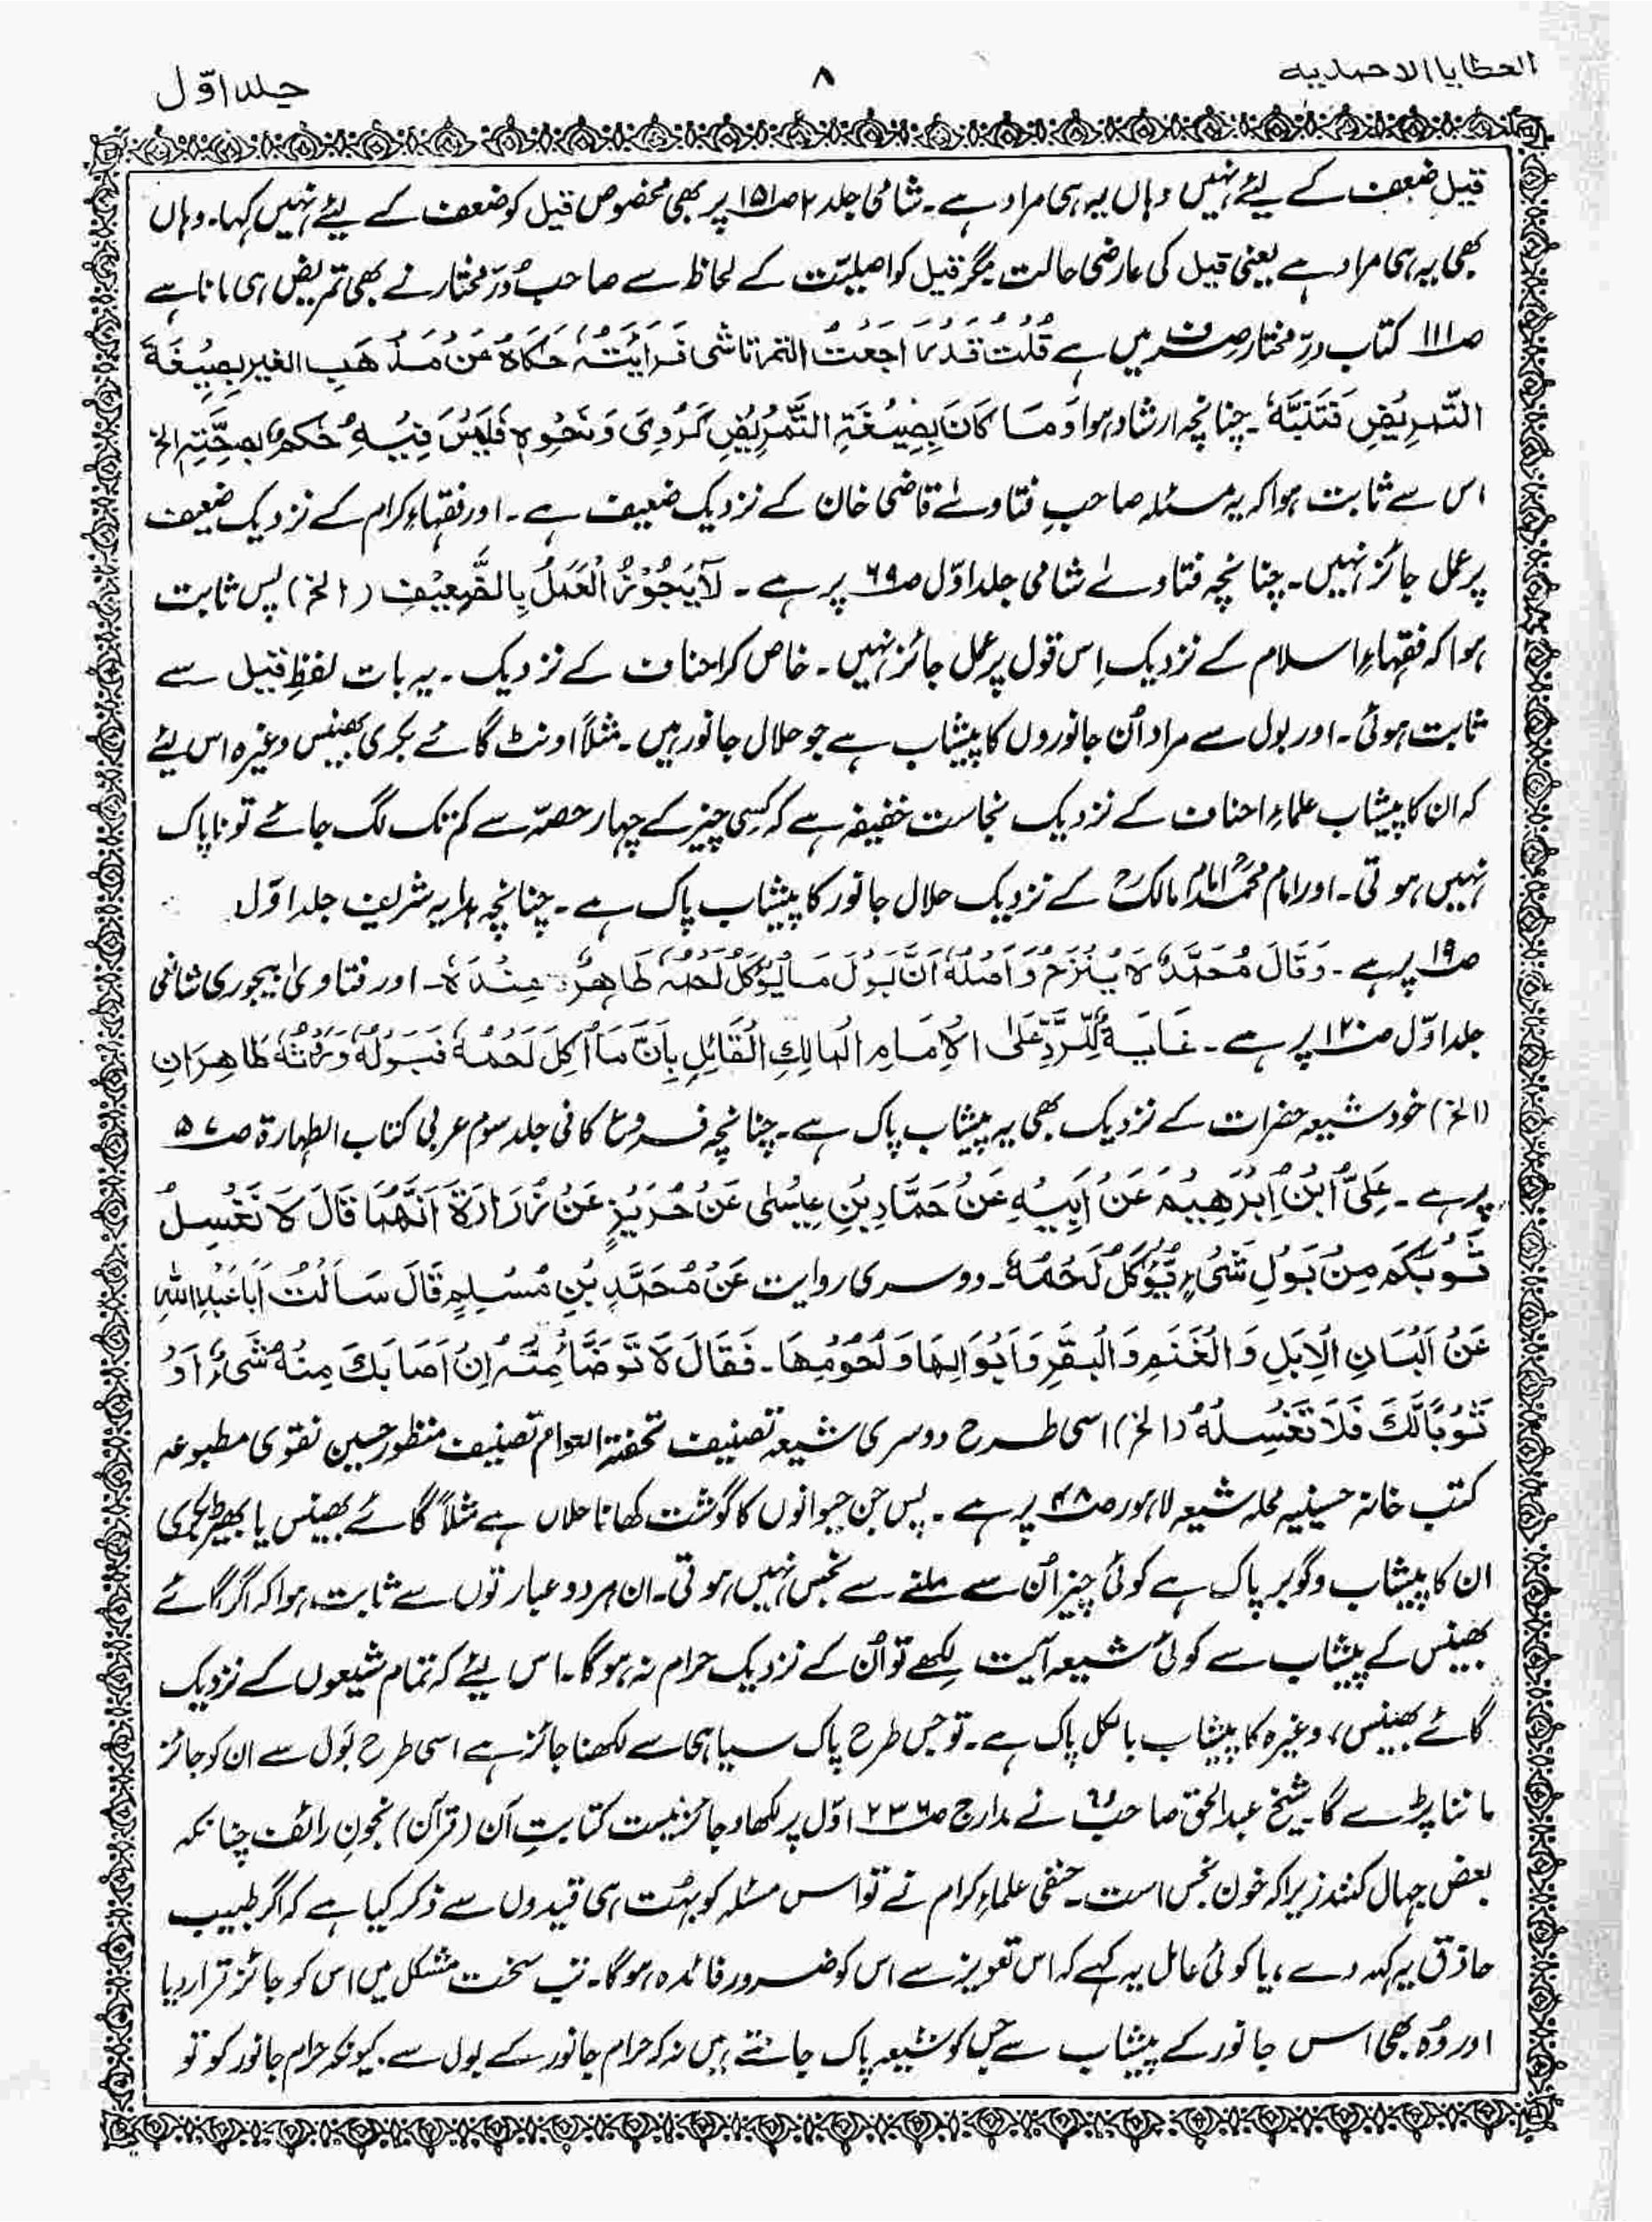 العطایا الاحمدیه
۸
جلد اوّل
قیل ضعف کے لیئے نہیں وہاں یہ ہی مراد ہے۔ شامی جلد ۲ صـ۱۵۱ پر بھی مخصوص قیل کو ضعف کے لیئے نہیں کہا۔ وہاں
بھی یہ ہی مراد ہے یعنی قیل کی عارضی حالت مگر قیل کو اصلیّت کے لحاظ سے صاحب دُرّ مختار نے بھی تمریض ہی مانا ہے
صـ۱۱۱ کتاب درّ مختار میں ہے قُلْتُ قَدْ رَاجَعْتُ التمرتاشی فَرَأَیْتُہٗ حَکَاہُ عَنْ مَذْھَبِ الغیرِ بِصِیْغَۃِ
التَّمْرِیْضِ فَتَنَبَّہْ۔ چنانچہ ارشاد ہوا وَمَا کَانَ بِصِیْغَۃِ التَّمْرِیْضِ کَرُوِیَ وَنَحْوِہٖ فَلَیْسَ فِیْہِ حُکْمٌ بِصِحَّتِہٖ الخ
اس سے ثابت ہوا کہ یہ مسئلہ صاحبِ فتاوےٰ قاضی خان کے نزدیک ضعیف ہے۔ اور فقہاءِ کرام کے نزدیک ضعیف
پر عمل جائز نہیں۔ چنانچہ فتاوےٰ شامی جلد اوّل صـ۶۹ پر ہے۔ لَا یَجُوْزُ الْعَمَلُ بِالضَّعِیْفِ (الخ) پس ثابت
ہوا کہ فقہاءِ اسلام کے نزدیک اِس قول پر عمل جائز نہیں۔ خاص کر احناف کے نزدیک۔ یہ بات لفظِ قیل سے
ثابت ہوئی۔ اور بول سے مراد اُن جانوروں کا پیشاب ہے جو حلال جانور ہیں۔ مثلاً اونٹ گائے بکری بھینس وغیرہ اس لیئے
کہ ان کا پیشاب علماءِ احناف کے نزدیک نجاست خفیفہ ہے کہ کسِی چیز کے چہار حصّہ سے کم تک لگ جائے تو ناپاک
نہیں ہوتی۔ اور امام محمدؒ امام مالکؒ کے نزدیک حلال جانور کا پیشاب پاک ہے۔ چنانچہ ہدایہ شریف جلد اوّل
صـ۱۹ پر ہے۔ وَقَالَ مُحَمَّدٌ لَا یُنْزَحُ وَاَصْلُہٗ اَنَّ بَوْلَ مَا یُؤْکَلُ لَحْمُہٗ طَاھِرٌ عِنْدَہٗ۔ اور فتاویٰ بیجوری شافعی
جلد اوّل صـ۱۲۰ پر ہے۔ غَایَۃٌ لِلرَّدِّ عَلَی الْاِمَامِ الْمَالِکِ الْقَائِلِ بِاَنَّ مَا اُکِلَ لَحْمُہٗ فَبَوْلُہٗ وَرَوْثُہٗ طَاھِرَانِ
(الخ) خود شیعہ حضرات کے نزدیک بھی یہ پیشاب پاک ہے۔ چنانچہ فروع کافی جلد سوم عربی کتاب الطہارۃ صـ۵۷
پر ہے۔ عَلِیُّ ابْنُ اِبْرٰھِیْمَ عَنْ اَبِیْہِ عَنْ حَمَّادِ بْنِ عِیْسٰی عَنْ حُرَیْزٍ عَنْ زُرَارَۃَ اَنَّھُمَا قَالَ لَا تَغْسِلْ
ثَوْبَکُمْ مِنْ بَوْلِ شَیْءٍ یُّؤْکَلُ لَحْمُہٗ۔ دوسری روایت عَنْ مُحَمَّدِ بْنِ مُسْلِمٍ قَالَ سَاَلْتُ اَبَا عَبْدِ اللہِ
عَنْ اَلْبَانِ الْاِبَلِ وَالْغَنَمِ وَالْبَقَرِ وَاَبْوَالِھَا وَلُحُوْمِھَا۔ فَقَالَ لَا تَوَضَّأْ مِنْہُ اِنْ اَصَابَکَ مِنْہُ شَیْءٌ اَوْ
ثَوْبًا لَّکَ فَلَا تَغْسِلْہُ (الخ) اسی طرح دوسری شیعہ تصنیف تحفۃ العوام تصنیف منظور حسین نقوی مطبوعہ
کتب خانہ حسینیہ محلہ شیعہ لاہور صـ۴۸ پر ہے۔ پس جن حیوانوں کا گوشت کھانا حلال ہے مثلاً گائے بھینس یا بھیڑ بکری
ان کا پیشاب و گوبر پاک ہے کوئی چیز اُن سے ملنے سے نجس نہیں ہوتی۔ ان ہر دو عبارتوں سے ثابت ہوا کہ اگر گائے
بھینس کے پیشاب سے کوئی شیعہ آیت لکھے تو اُن کے نزدیک حرام نہ ہوگا۔ اس لیئے کہ تمام شیعوں کے نزدیک
گائے بھینس، وغیرہ کا پیشاب بالکل پاک ہے۔ تو جس طرح پاک سیاہی سے لکھنا جائز ہے اسی طرح بَول سے ان کو جائز
ماننا پڑے گا۔ شیخ عبدالحق صاحب نے مدارج صـ۲۳۶ اوّل پر لکھا و جائز نیست کتابتِ آن (قرآن) بخونِ رائف چنانکہ
بعض جہال کنند زیرا کہ خون نجس است۔ حنفی علماءِ کرام نے تو اس مسئلہ کو بہُت ہی قیدوں سے ذکر کیا ہے کہ اگر طبیب
حاذق یہ کہہ دے، یا کوئی عامل یہ کہے کہ اس تعویز سے اس کو ضرور فائدہ ہوگا۔ تب سخت مشکل میں اس کو جائز قرار دیا
اور وُہ بھی اس جانور کے پیشاب سے جس کو شیعہ پاک جانتے ہیں نہ کہ حرام جانور کے بول سے۔ کیونکہ حرام جانور کو تو